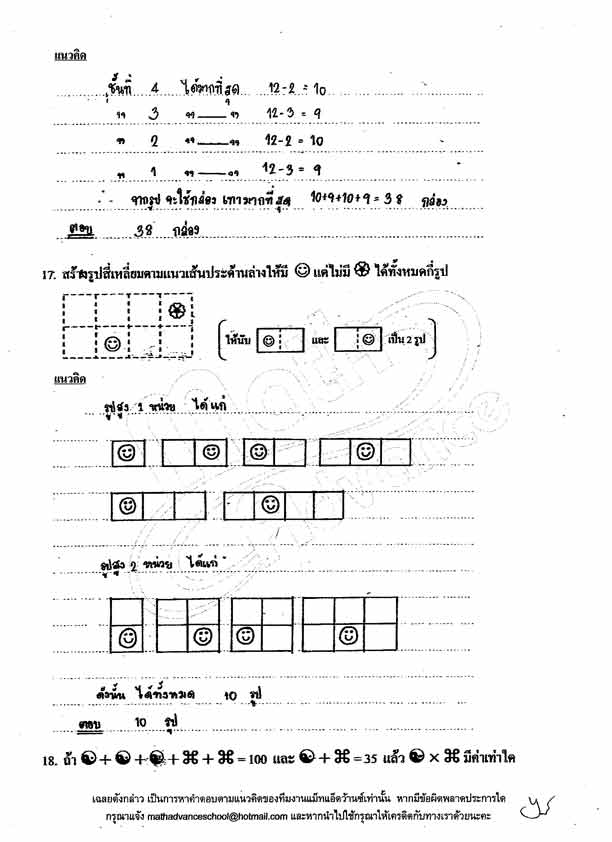 แนวคิด
ชั้นที่ 4 ได้มากที่สุด 12-2 = 10
" 3 " — " 12-3 = 9
" 2 " — " 12-2 = 10
" 1 " — " 12-3 = 9
∴ จากรูป จะใช้กล่อง เทามากที่สุด 10+9+10+9 = 38 กล่อง
ตอบ 38 กล่อง
17. สร้างรูปสี่เหลี่ยมตามแนวเส้นประด้านล่างให้มี ☺ แต่ไม่มี ได้ทั้งหมดกี่รูป
ให้นับ และ เป็น 2 รูป
แนวคิด
รูปสูง 1 หน่วย ได้แก่
รูปสูง 2 หน่วย ได้แก่
ดังนั้น ได้ทั้งหมด 10 รูป
ตอบ 10 รูป
18. ถ้า ☯ + ☯ + ☯ + ⌘ + ⌘ = 100 และ ☯ + ⌘ = 35 แล้ว ☯ × ⌘ มีค่าเท่าใด
เฉลยดังกล่าว เป็นการหาคำตอบตามแนวคิดของทีมงานแม็ทแอ็ดว้านซ์เท่านั้น หากมีข้อผิดพลาดประการใด
กรุณาแจ้ง mathadvanceschool@hotmail.com และหากนำไปใช้กรุณาให้เครดิตกับทางเราด้วยนะคะ
Math